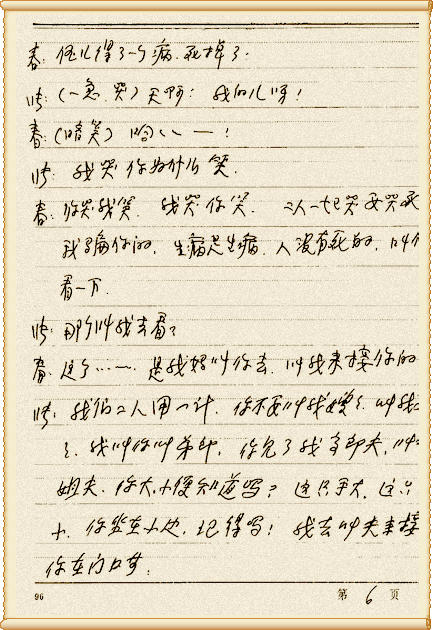 春: 侄儿得了一个病.死掉了.
时: (一急.哭) 天啊: 我的儿呀!
春: (暗笑) 哈〵〵一!
时: 我哭你为什么笑.
春: 你哭我笑. 我哭你笑. 二人一起哭要哭死
我骗你的. 生病是生病.人没有死的.叫你
看一下.
时: 那个叫我去看?
春: 这个……. 是我妈叫你去. 叫我来接你的
时: 我们二人用一计. 你不要叫我 叫我
我叫你叫弟郎. 你见了我 叫
姐夫.你大小便知道吗? 这只手大.这只
小. 你坐在小边.记得吗! 我去叫夫来接
你在门口等.
96 第 6 页